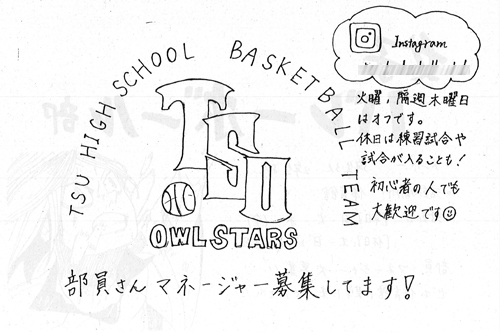 TSU HIGH SCHOOL BASKETBALL TEAM
TSU
OWLSTARS
Instagram
火曜,隔週木曜日
はオフです。
休日は練習試合や
試合が入ることも!
初心者の人でも
大歓迎です☺
部員さん マネージャー募集してます!